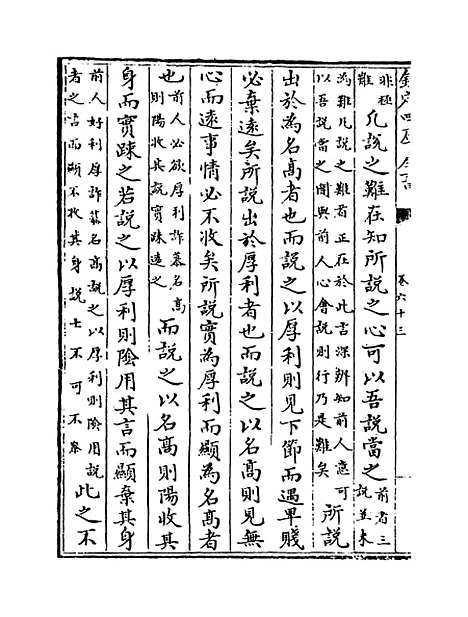 欽定四庫全書
卷六十三
非極
難
凡說之難在知所說之心可以吾說當之
前者三
說並未
為難凡說之難者正在於此言深辨知前人意可
以吾說當之閒與前人心會說則行乃是難矣
所說
出於為名髙者也而說之以厚利則見下節而遇卑賤
必棄遠矣所說出於厚利者也而說之以名髙則見無
心而遠事情必不收矣所說實為厚利而顯為名髙者
也
前人必欲厚利詐慕名髙
則陽收其說實疎遠之
而說之以名髙則陽收其
身而實疎之若說之以厚利則隂用其言而顯棄其身
前人好利厚詐慕名髙說之以厚利則隂用說
者之言而顯不收其身說士不可不察
此之不